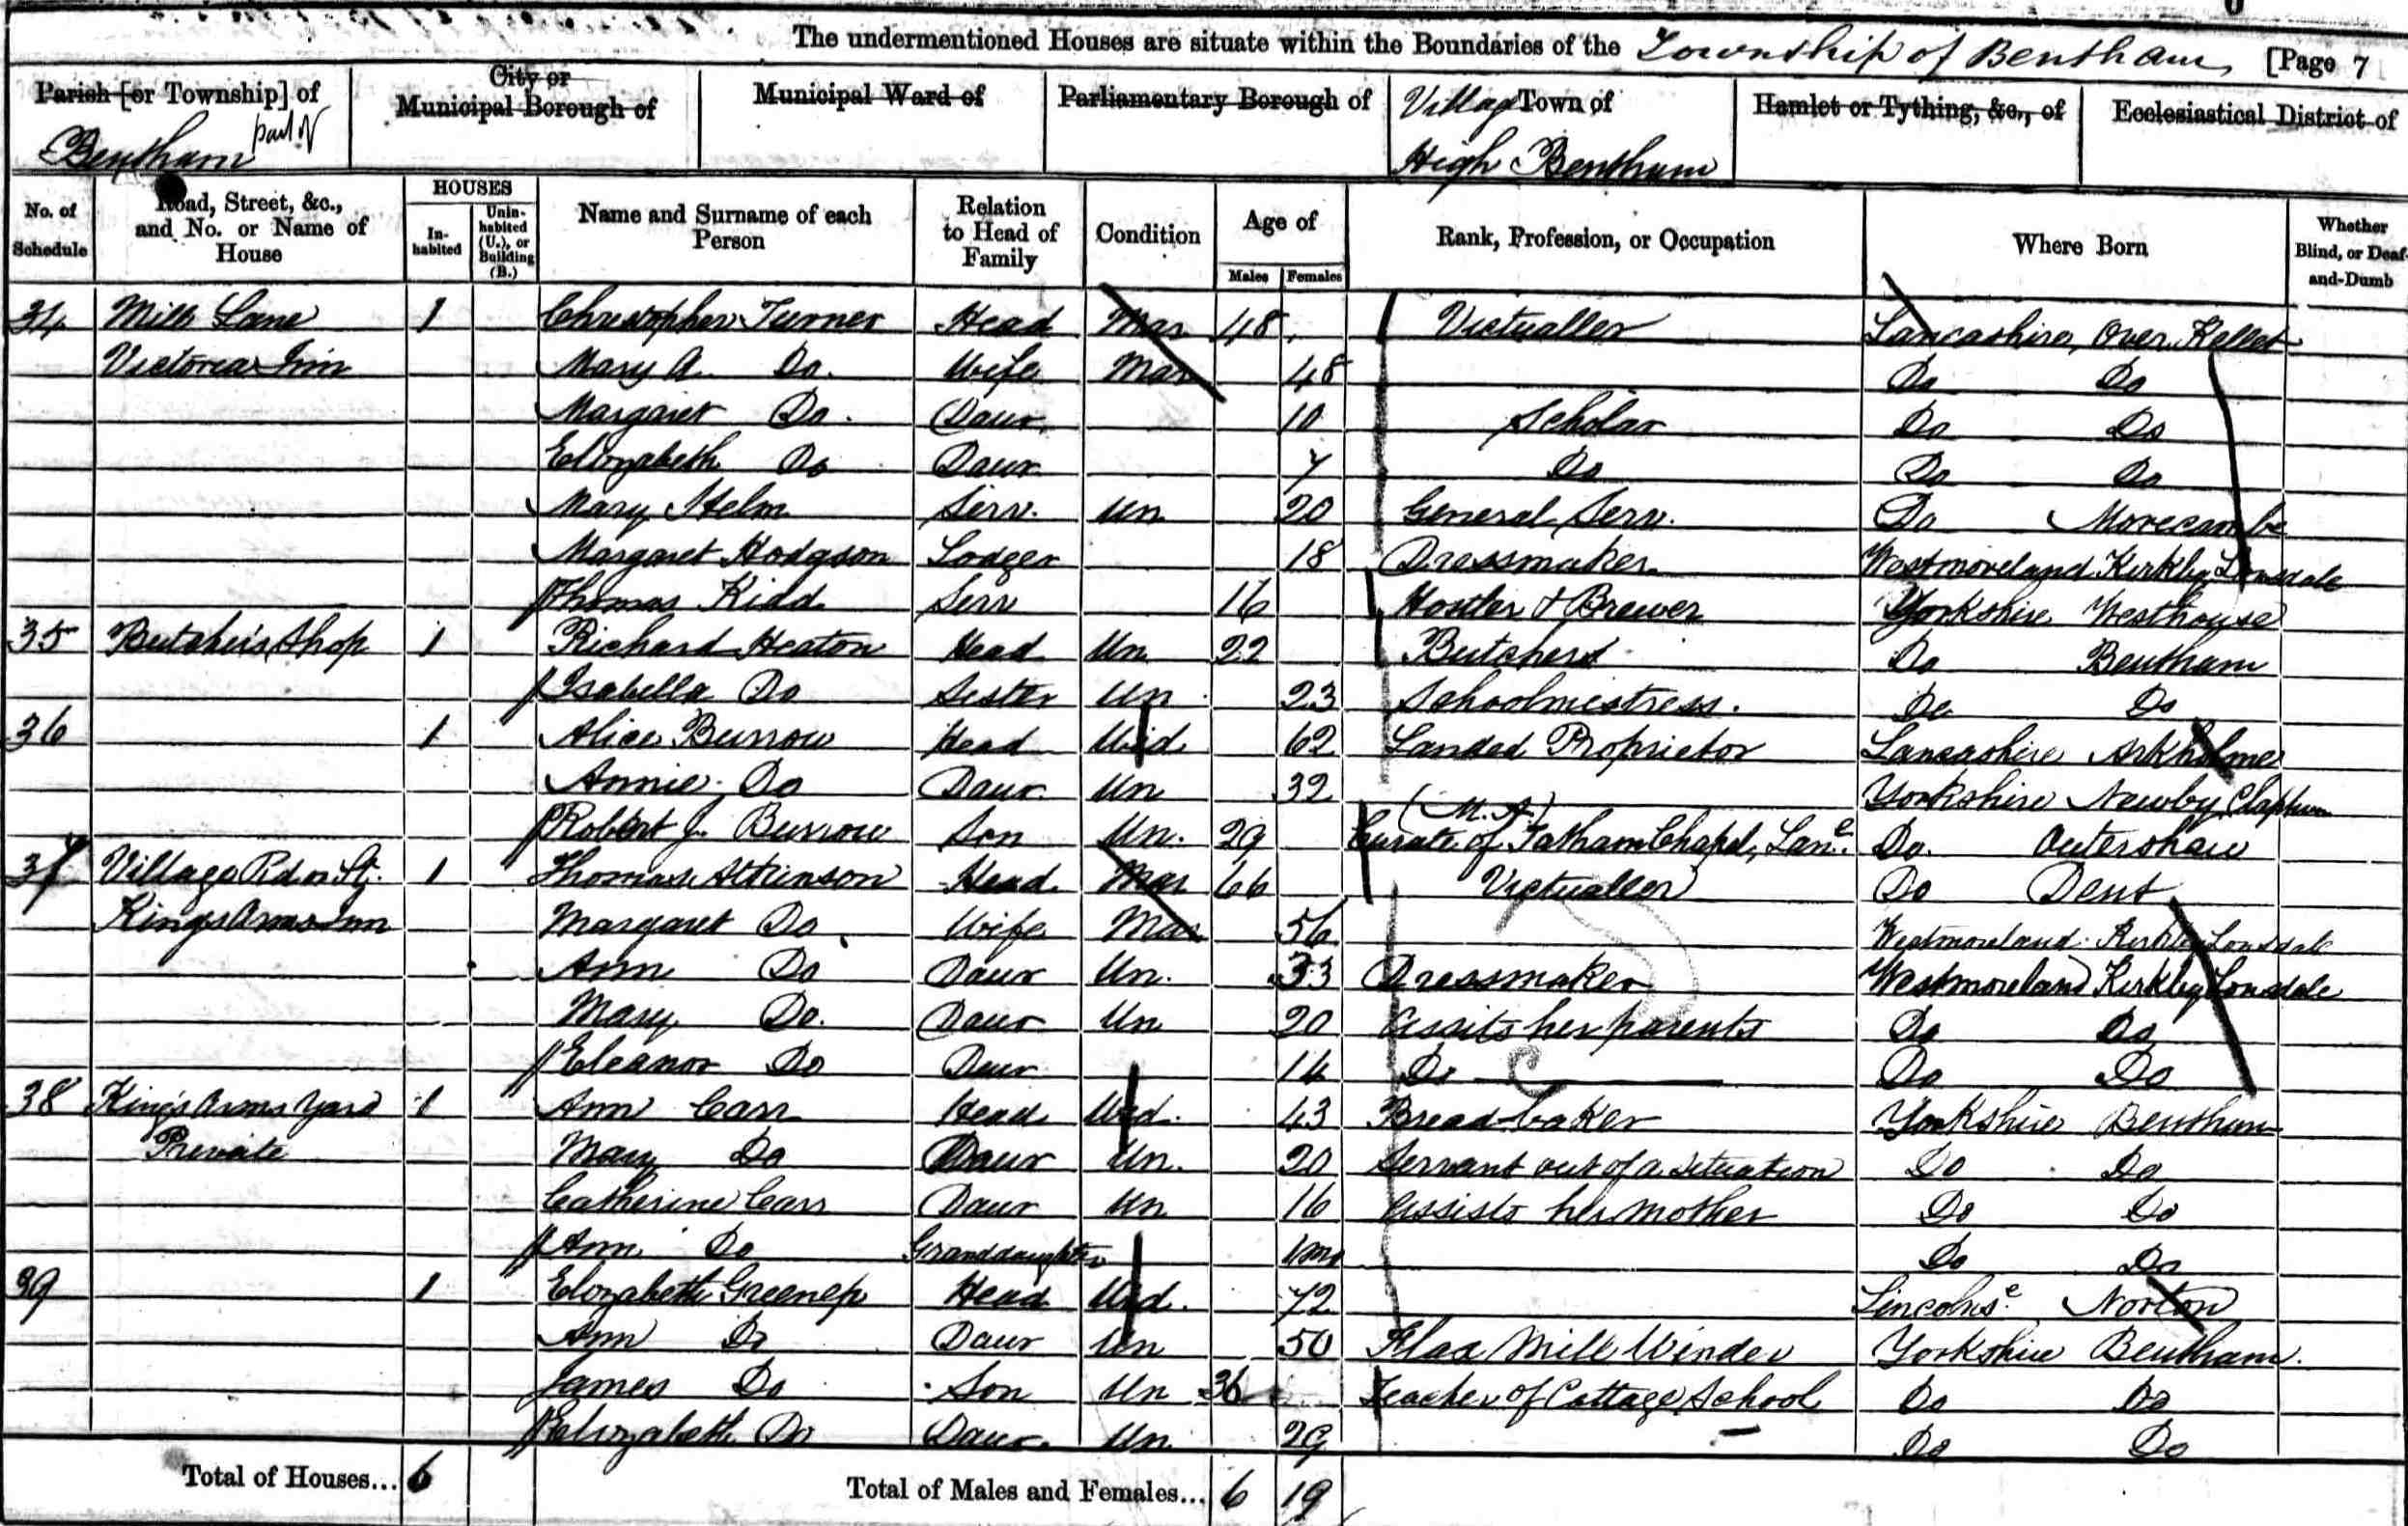 The undermentioned Houses are situate within the Boundaries of the Township of Bentham [Page 7
Parish [or Township] of part of Bentham
City or Municipal Borough of
Municipal Ward of
Parliamentary Borough of
Village Town of High Bentham
Hamlet or Tything, &c., of
Ecclesiastical District of
No. of Schedule
Road, Street, &c., and No. or Name of House
HOUSES
In-habited
Unin-habited (U.), or Building (B.)
Name and Surname of each Person
Relation to Head of Family
Condition
Age of
Males Females
Rank, Profession, or Occupation
Where Born
Whether Blind, or Deaf-and-Dumb
34 Mill Lane 1 Christopher Turner Head Mar 48 Victualler Lancashire, Over Kellet
Victoria Inn Mary A. Do. Wife Mar 48 Do Do
Margaret Do. Daur. 10 Scholar Do Do
Elizabeth Do Daur 7 Do Do Do
Mary Helm Serv. Un 20 General Serv. Do Morecambe
Margaret Hodgson Lodger 18 Dressmaker Westmoreland Kirkby Lonsdale
Thomas Kidd Serv 16 Hostler & Brewer Yorkshire Westhouse
35 Butcher's Shop 1 Richard Heaton Head Un 22 Butcher Do Bentham
Isabella Do Sister Un 23 Schoolmistress. Do Do
36 1 Alice Burrow Head Wid 62 Landed Proprietor Lancashire Arkholme
Annie Do Daur. Un 32 Yorkshire Newby, Clapham
Robert J. Burrow Son Un. 29 (M.A.) Curate of Tatham Chapel, Lanc. Do. Outershaw
37 Village 1 Thomas Atkinson Head Mar 66 Victualler Do Dent
Kings Arms Inn Margaret Do Wife Mar 56 Westmoreland Kirkby Lonsdale
Ann Do Daur Un. 33 Dressmaker Westmoreland Kirkby Lonsdale
Mary Do. Daur Un 20 Assits her parents Do Do
Eleanor Do Daur 14 Do Do Do
38 King's Arms Yard 1 Ann Carr Head Wid. 43 Bread-baker Yorkshire Bentham
Private Mary Do Daur Un. 20 Servant out of a situation Do Do
Catherine Carr Daur Un 16 Assists her mother Do Do
Ann Do Granddaughter 1mo Do Do
39 1 Elizabeth Greenep Head Wid. 72 Lincolnse Norton
Ann Do Daur Un 50 Flax Mill Winder Yorkshire Bentham.
James Do Son Un 36 Teacher of Cottage School Do Do
Elizabeth Do Daur. Un 29 Do Do
Total of Houses... 6 Total of Males and Females... 6 19